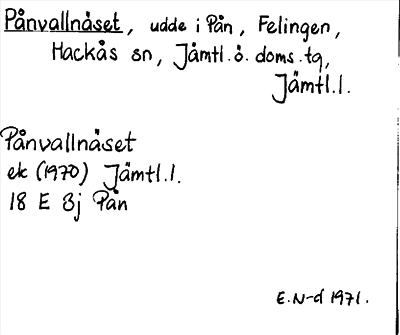 Pånvallnäset, udde i Pån, Felingen,
Hackås sn, Jämtl.ö. doms.tg,
Jämtl.l.
Pånvallnäset
ek (1970) Jämtl.l.
18 E 3j Pån
E.N-d 1971.